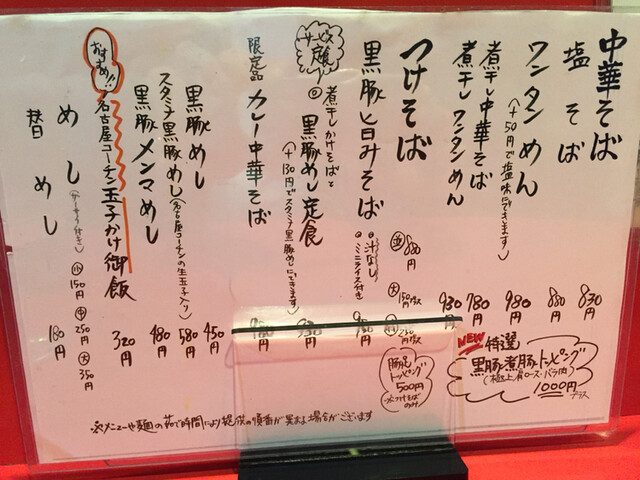 中華そば 830円
塩そば 880円
ワンタンめん 980円
(+50円で塩味にできます)
煮干し中華そば 780円
煮干しワンタンめん 930円
つけそば 並 880円
大 150円
黒豚旨みそば
汁なし
ミニライス付き
サービス定食
煮干しかけそばと
黒豚めし定食
(+130円でスタミナ黒豚めしにできます)
限定品 カレー中華そば
黒豚めし 450円
スタミナ黒豚めし(名古屋コーチンの生玉子入り) 580円
黒豚メンマめし 480円
おすすめ!!
名古屋コーチン玉子かけ御飯 320円
めし (ザーサイ付き) 小 150円 中 250円 大 350円
替めし 180円
NEW 特選
黒豚煮豚トッピング
(極上肩ロース・バラ肉)
1000円プラス
トッピング
500円
※メニューや麺の茹で時間により提供の順番が異なる場合がございます